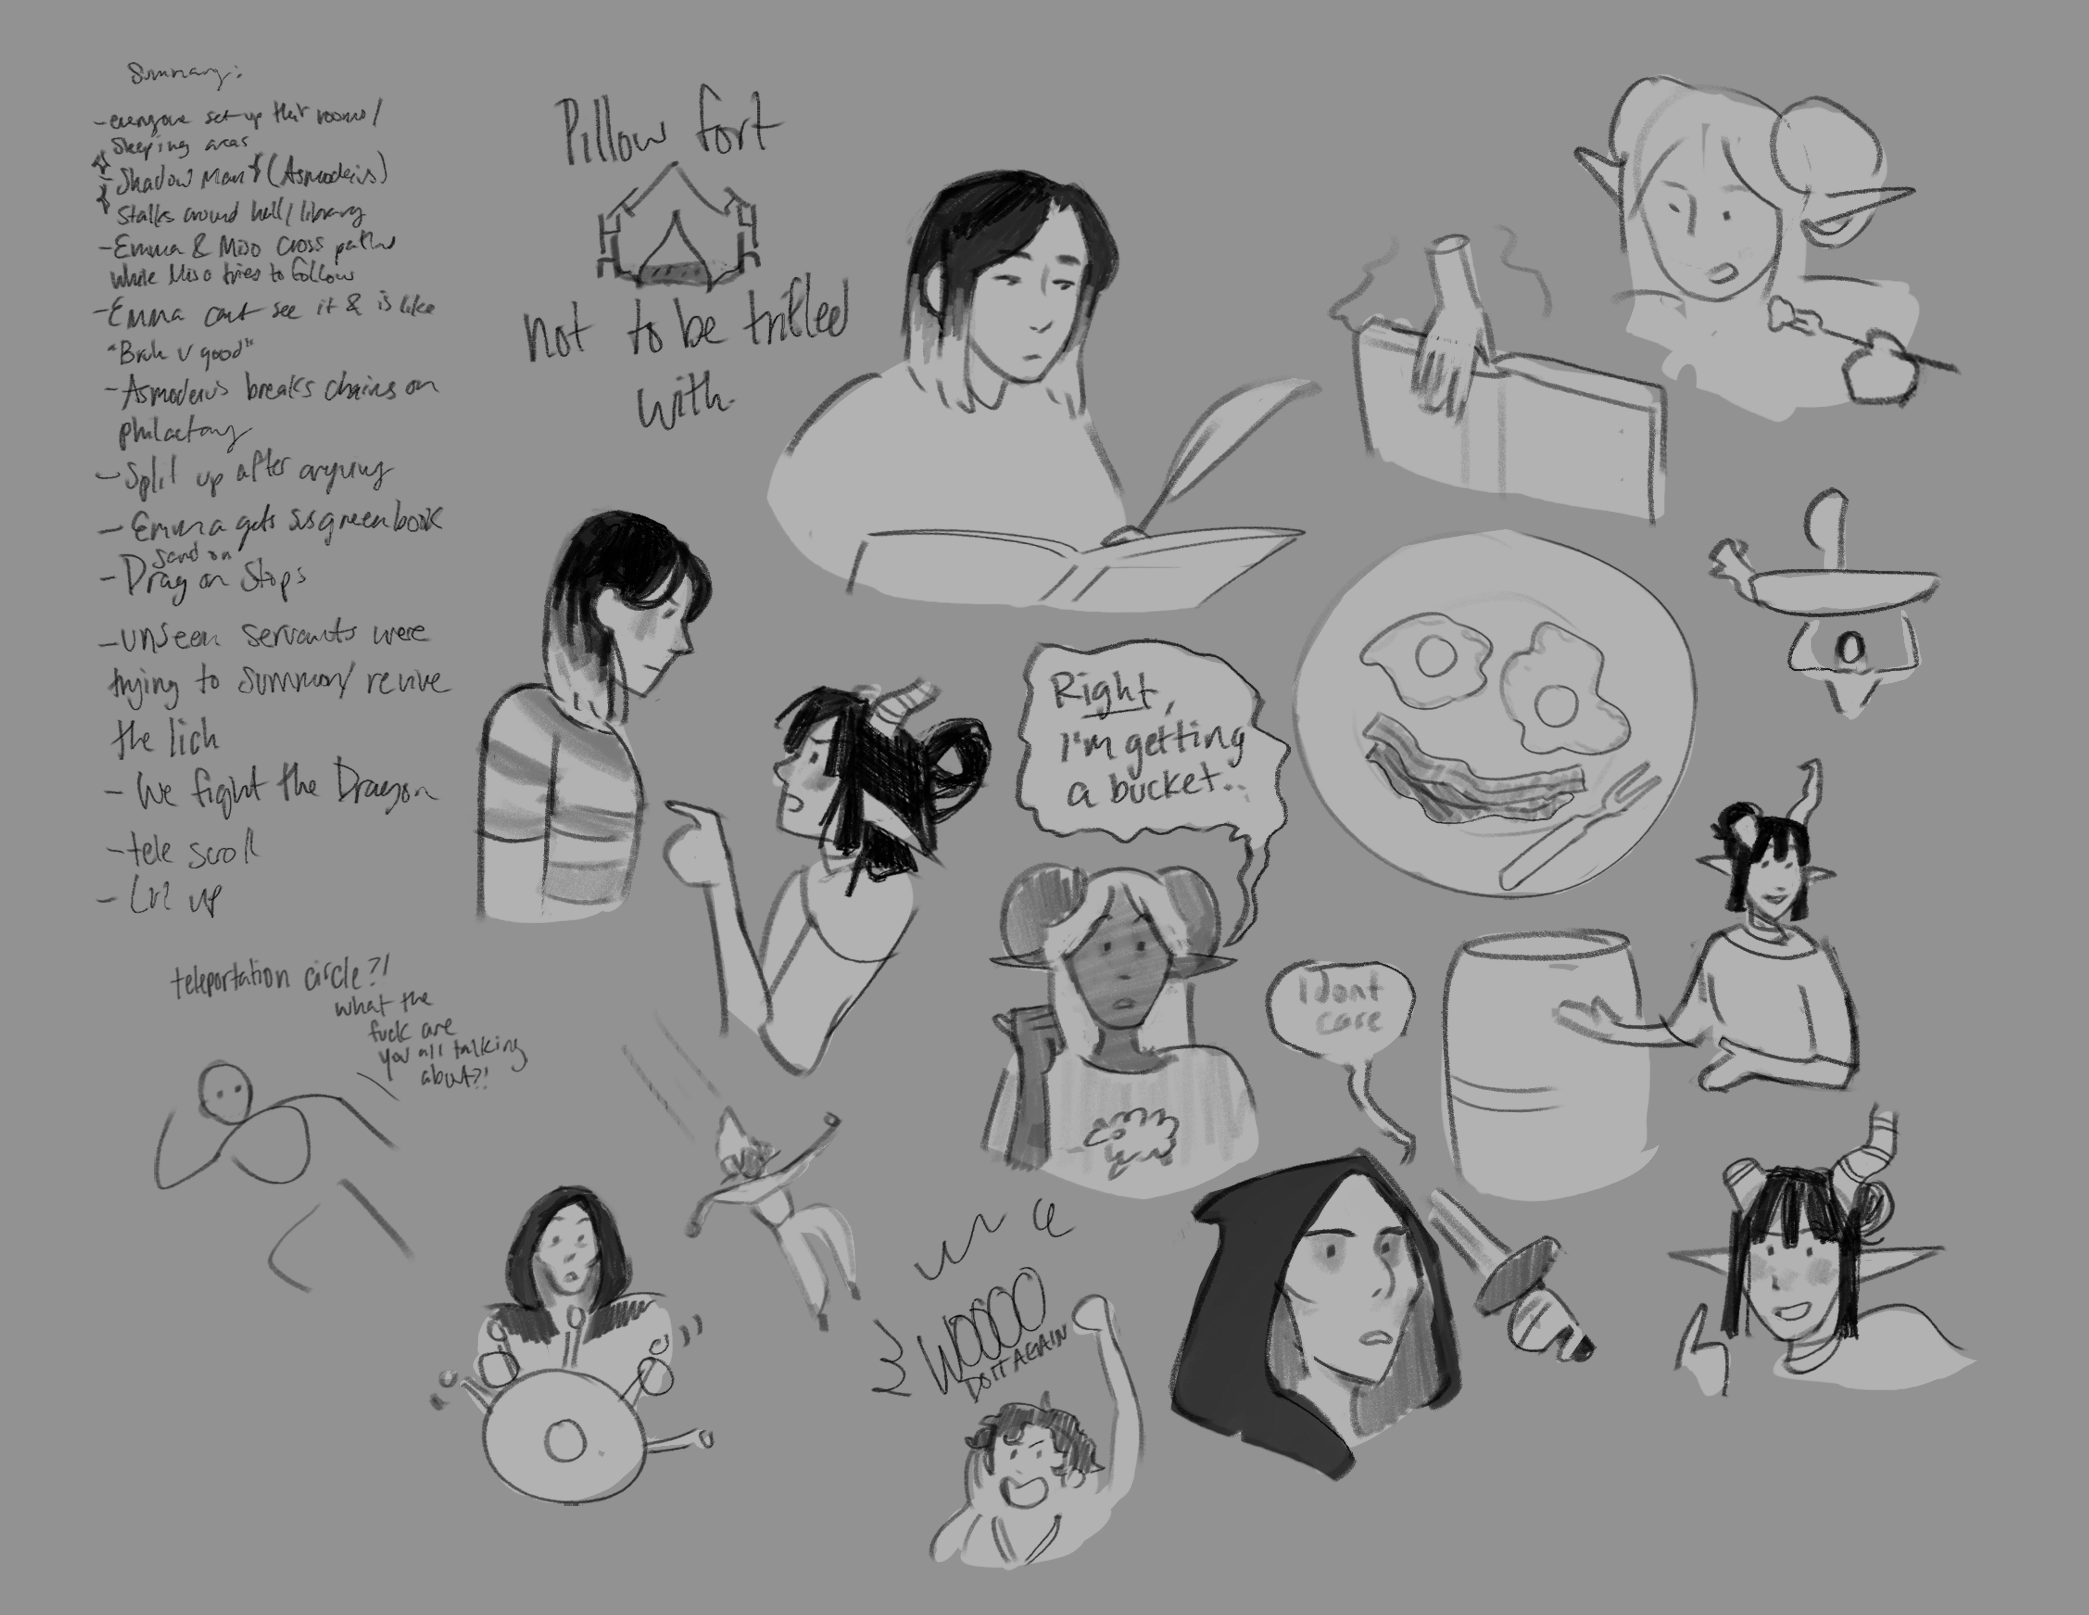 Summary:
- everyone set up their rooms/
Sleeping areas
- Shadow Man (Asmodeus)
Stalks around hall/library
- Emma & Miso cross paths
while Miso tries to follow
- Emma cant see it & is like
"Bruh u good"
- Asmodeus breaks chains on
philactory
- Split up after arguing
- Emma gets sus green book
send on
- Dragon Stops
- unseen servants were
trying to summon/ revive
the lich
- We fight the Dragon
- tele scroll
- Lvl up
Pillow fort
not to be trifled
with.
Right,
I'm getting
a bucket..
I dont
care
teleportation circle?!
what the
fuck are
you all talking
about?!
WOOOO
DO IT AGAIN